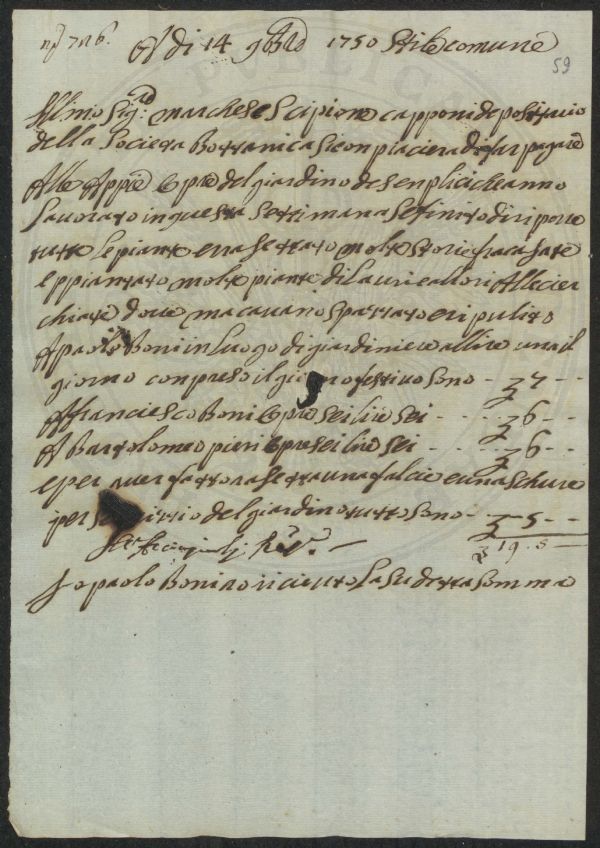 A di 14 9bre 1750 Stile comune
59
Illmo Sig.re marchese Scipione capponi depositario
della Societa Bottanica Si conpiacera di far pagare
Alle Appie Opre del giardino de senplici che anno
lavorato in questa Settimana Se finito di riporre
tutte le piante e rasettato molte storie fracasate
e ppiantato molte piante di Lauri e allori Alle cier
chiate dove macavano spazzato e ripulito
A paolo Boni in luogo di giardiniere a llire una il
giorno conpreso il giorno festivo sono - - 7 - -
A ffranciesco Boni Opre sei lire sei - - - - 6 - -
A Bartolomeo pieri Opre sei lire sei - - - - 6 - -
e per aver fatto rasettar una falcie e una schure
per servizio del giardino tutto sono - - 5 - -
19. 5 -
Io paolo Boni o ricieuto la sudetta somma